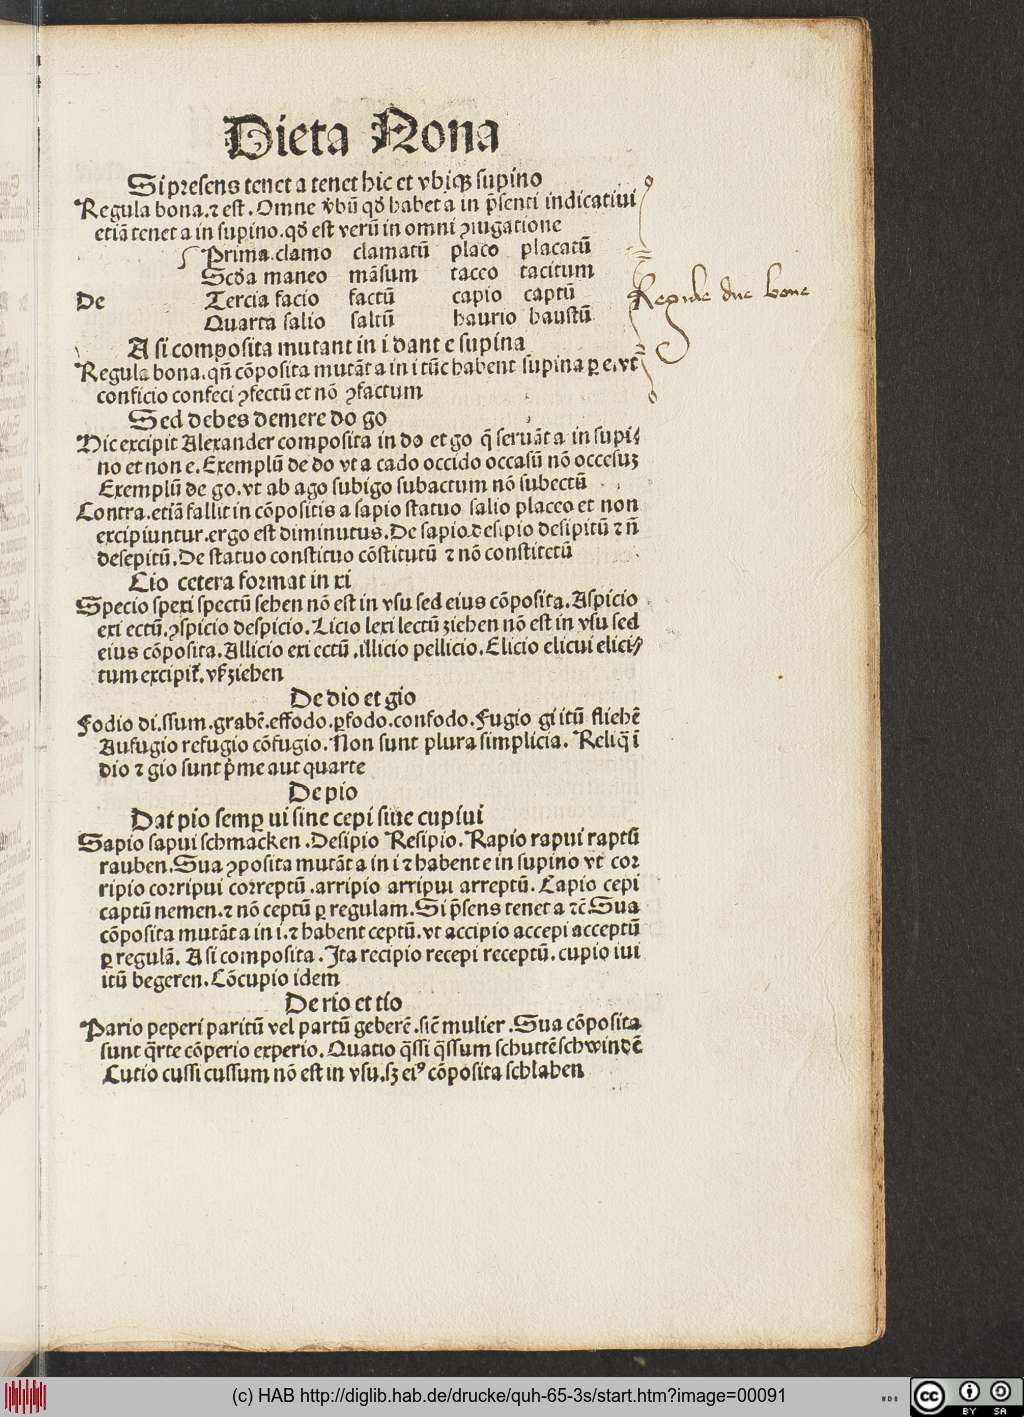 Dieta Nona
Si presens tenet a tenet hic et vbiqꝫ supino
Regula bona. ⁊ est. Omne v̄bū qđ habet a in p̄senti indicatiui
etiā tenet a in supino. qđ est verū in omni ꝯiugatione
Prima clamo clamatū placo placatū
Scđa maneo māsum taceo tacitum
De Tercia facio factū capio captū
Quarta salio saltū haurio haustū
Regule due bone
A si composita mutant in i dant e supina
Regula bona. qn̄ cōposita mutāt a in i tūc habent supina ꝑ e. vt
conficio confeci ꝯfectū et nō ꝯfactum
Sed debes demere do go
Hic excipit Alexander composita in do et go q̄ seruāt a in supi⸗
no et non e. Exemplū de do vt a cado occido occasū nō occesuꝫ
Exemplū de go. vt ab ago subigo subactum nō subectū
Contra. etiā fallit in cōpositis a sapio statuo salio placeo et non
excipiuntur. ergo est diminutus. De sapio desipio desipitū ⁊ n̄
desepitū. De statuo constituo cōstitutū ⁊ nō constitetū
Cio cetera format in xi
Specio spexi spectū sehen nō est in vsu sed eius cōposita. Aspicio
exi ectū. ꝯspicio despicio. Licio lexi lectū ziehen nō est in vsu sed
eius cōposita. Allicio exi ectū. illicio pellicio. Elicio elicui elici⸗
tum excipit̄. vß ziehen
De dio et gio
Fodio di. ssum. grabē. effodo. ꝑfodo. confodo. Fugio gi itū fliehē
Aufugio refugio cōfugio. Non sunt plura simplicia. Reliq̄ ī
dio ⁊ gio sunt p̄me aut quarte
De pio
Dat pio semꝑ ui sine cepi siue cupiui
Sapio sapui schmacken. Desipio Resipio. Rapio rapui raptū
rauben. Sua ꝯposita mutāt a in i ⁊ habent e in supino vt cor
ripio corripui correptū. arripio arripui arreptū. Capio cepi
captū nemen. ⁊ nō ceptū ꝑ regulam. Si p̄sens tenet a ⁊c̄. Sua
cōposita mutāt a in i. ⁊ habent ceptū. vt accipio accepi acceptū
ꝑ regulā. A si composita. Ita recipio recepi receptū. cupio iui
itū begeren. Cōcupio idem
De rio et tio
Pario peperi paritū vel partū geberē. sic̄ mulier. Sua cōposita
sunt q̄rte cōperio experio. Quatio q̄ssi q̄ssum schuttē schwindē
Cutio cussi cussum nō est in vsu. sꝫ eiꝰ cōposita schlahen
(c) HAB http://diglib.hab.de/drucke/quh-65-3s/start.htm?image=00091
WDB
cc BY SA